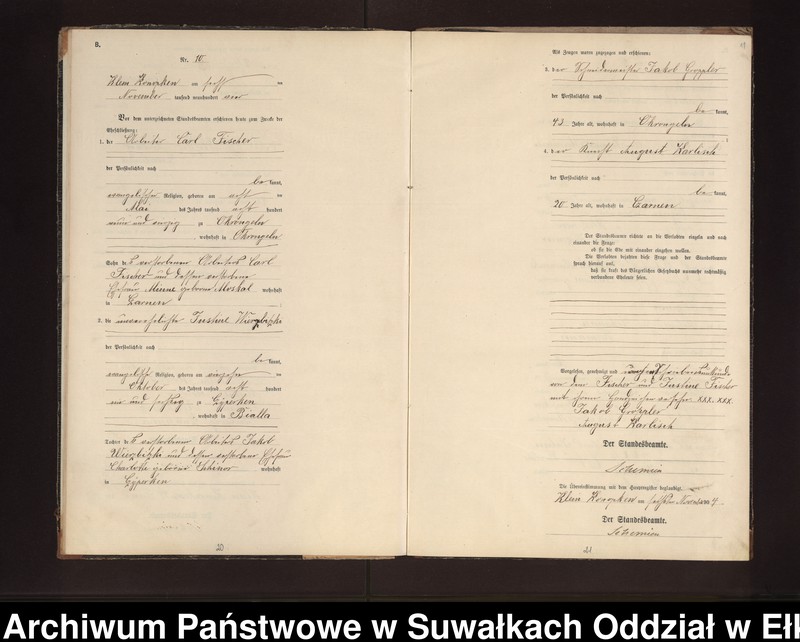 B.
Nr. 10.
Klein am sechsten
November tausend neunhundert vier
Vor dem unterzeichneten Standesbeamten erschienen heute zum Zwecke der
Eheschließung:
1. der Arbeiter Carl Fischer
der Persönlichkeit nach
be kannt,
evangelischer Religion, geboren am acht ten
Mai des Jahres tausend acht hundert
neun und vierzig zu Okrongeln
, wohnhaft in Okrongeln
Sohn des verstorbenen Arbeiters Carl
Fischer und dessen verstorbene
Ehefrau Minne geborene Moskal wohnhaft
in Czarnen
2. die unverehelichte Justine
der Persönlichkeit nach
be kannt,
evangelischer Religion, geboren am
Oktober des Jahres tausend acht hundert
ein und sechzig zu Gyperken
, wohnhaft in Bialla
Tochter des verstorbenen Arbeiters Jakob
und dessen verstorbene Ehefrau
Charlotte geborene wohnhaft
in Gyperken
20
Als Zeugen waren zugezogen und erschienen:
3. der Schneidermeister Jakob Grozpler
der Persönlichkeit nach
be kannt,
43 Jahre alt, wohnhaft in Okrongeln
4. der Knecht August Karlisch
der Persönlichkeit nach
be kannt,
20 Jahre alt, wohnhaft in Czarnen
Der Standesbeamte richtete an die Verlobten einzeln und nach
einander die Frage:
ob sie die Ehe mit einander eingehen wollen.
Die Verlobten bejahten diese Frage und der Standesbeamte
sprach hierauf aus,
daß sie kraft des Bürgerlichen Gesetzbuchs nunmehr rechtmäßig
verbundene Eheleute seien.
Vorgelesen, genehmigt und wegen Schreibensunkunde
von dem Fischer und Justine Fischer
mit ihrem Handzeichen versehen XXX. XXX.
Jakob Grozpler
August Karlisch
Der Standesbeamte.
Die Übereinstimmung mit dem Hauptregister beglaubigt.
Klein am sechsten November 4.
Der Standesbeamte.
21
Archiwum Państwowe w Suwałkach Oddział w Eł